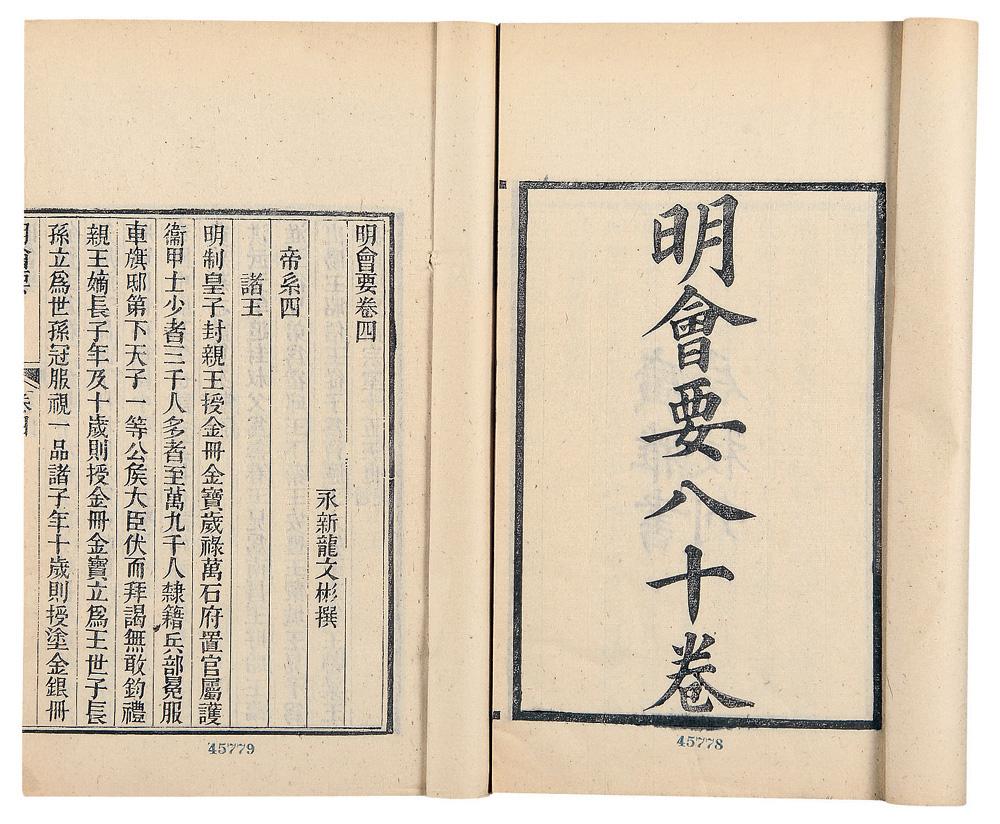 明會要八十卷
45778
明會要卷四
永新龍文彬撰
帝系四
諸王
明制皇子封親王授金冊金寶歲祿萬石府置官屬護
衞甲士少者三千人多者至萬九千人隸籍兵部冕服
車旗邸第下天子一等公侯大臣伏而拜謁無敢鈞禮
親王嫡長子年及十歲則授金冊金寶立爲王世子長
孫立爲世孫冠服視一品諸子年十歲則授塗金銀冊
明會要
卷四
45779